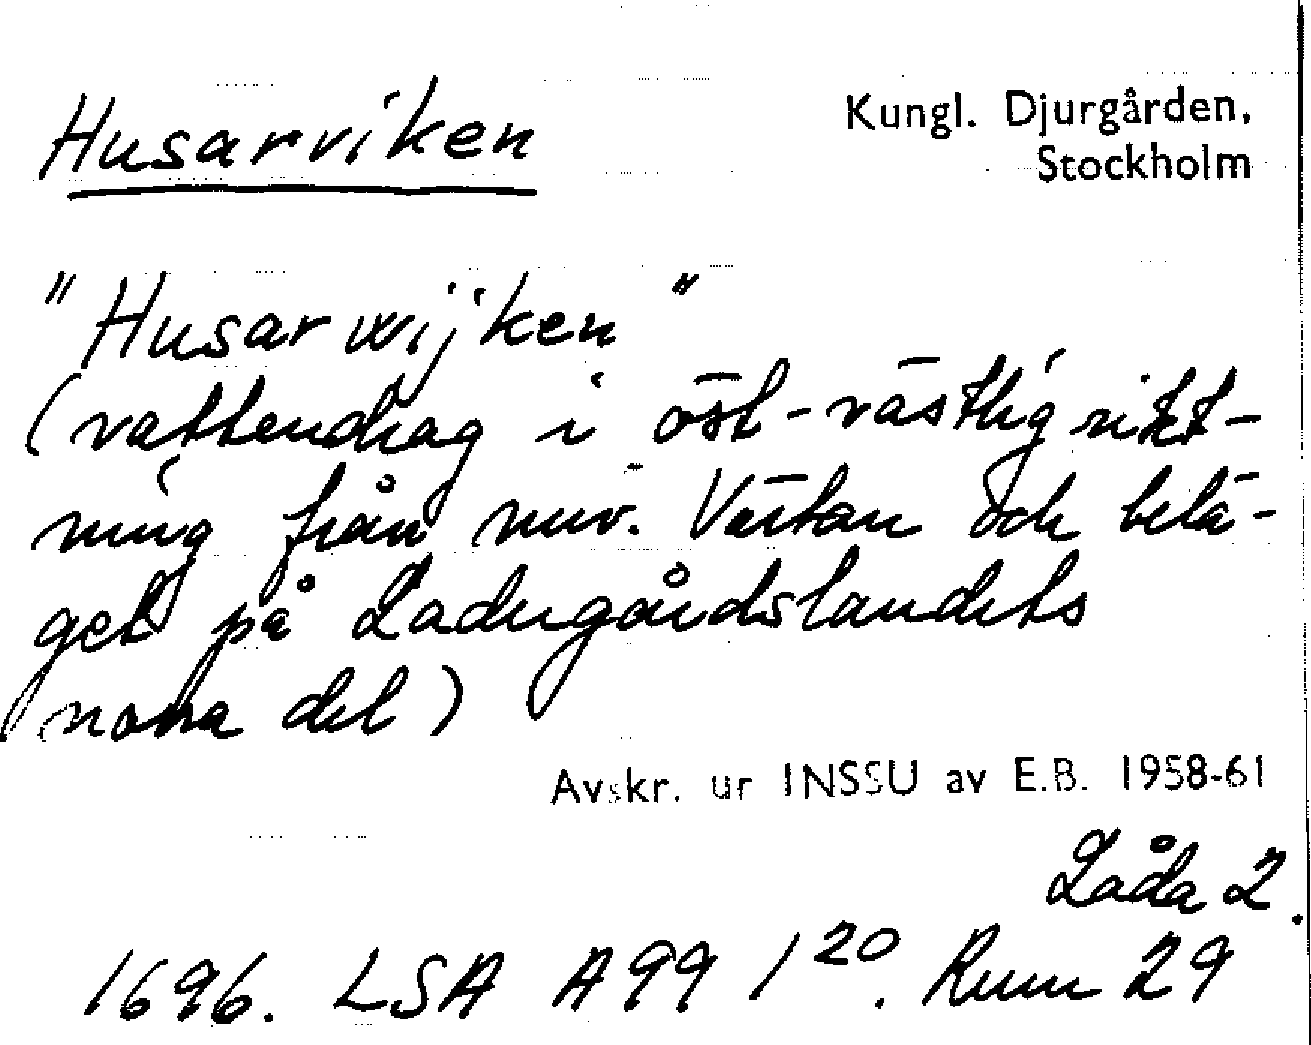 Husarviken
Kungl. Djurgården,
Stockholm
"Husarwijken"
(vattendrag i öst-västlig rikt-
ning från nuv. Värtan och belä-
get på Ladugårdslandets
norra del)
Avskr. ur INSSU av E.B. 1958-61
Låda 2.
1696. LSA A99 1²⁰. Rum 29